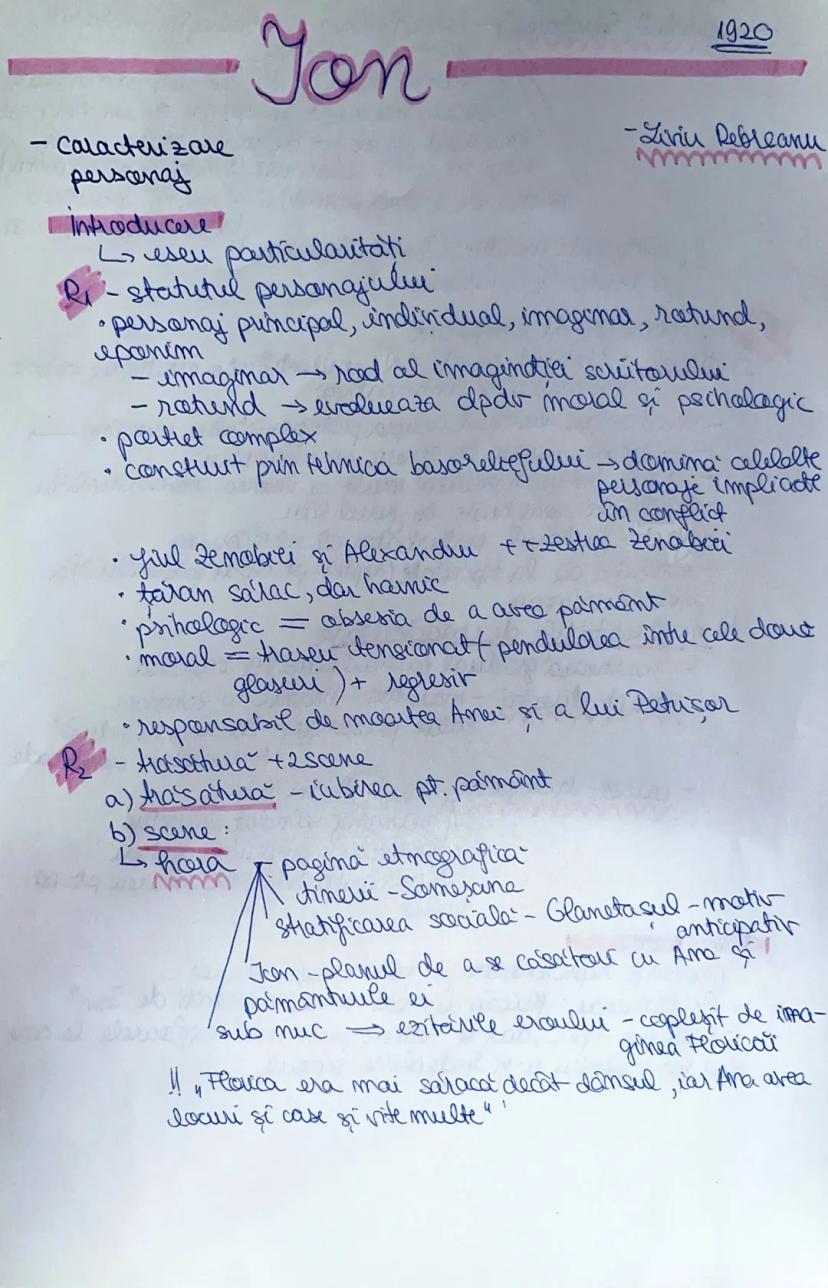 1920
Ion
- Liviu Rebreanu
- caracterizare
personaj
Introducere
↳ eseu particularități
R1 - statutul personajului
• personaj principal, individual, imaginar, rotund,
eponim
- imaginar → rod al imaginației scriitorului
- rotund → evoluează dpdv moral și psihologic
• portret complex
• construit prin tehnica basoreliefului → domină celelalte
personaje implicate
în conflict
• fiul Zenobiei și Alexandru + zestrea Zenobiei
• țăran sărac, dar harnic
• psihologic = obsesia de a avea pământ
• moral = traseu tensionat (pendularea între cele două
glasuri) + regresiv
• responsabil de moartea Anei și a lui Petrișor
R2 - trăsătură + 2 scene
a) trăsătură - iubirea pt. pământ
b) scene:
↳ hora - pagină etnografică
tinerii - Someșana
stratificarea socială - Glanetașul - motiv
anticipativ
Ion - planul de a se căsători cu Ana și
pământurile ei
sub nuc ⇒ ezitările eroului - copleșit de ima-
ginea Floricăi
!! "Florica era mai săracă decât dânsul, iar Ana avea
locuri și case și vite multe"